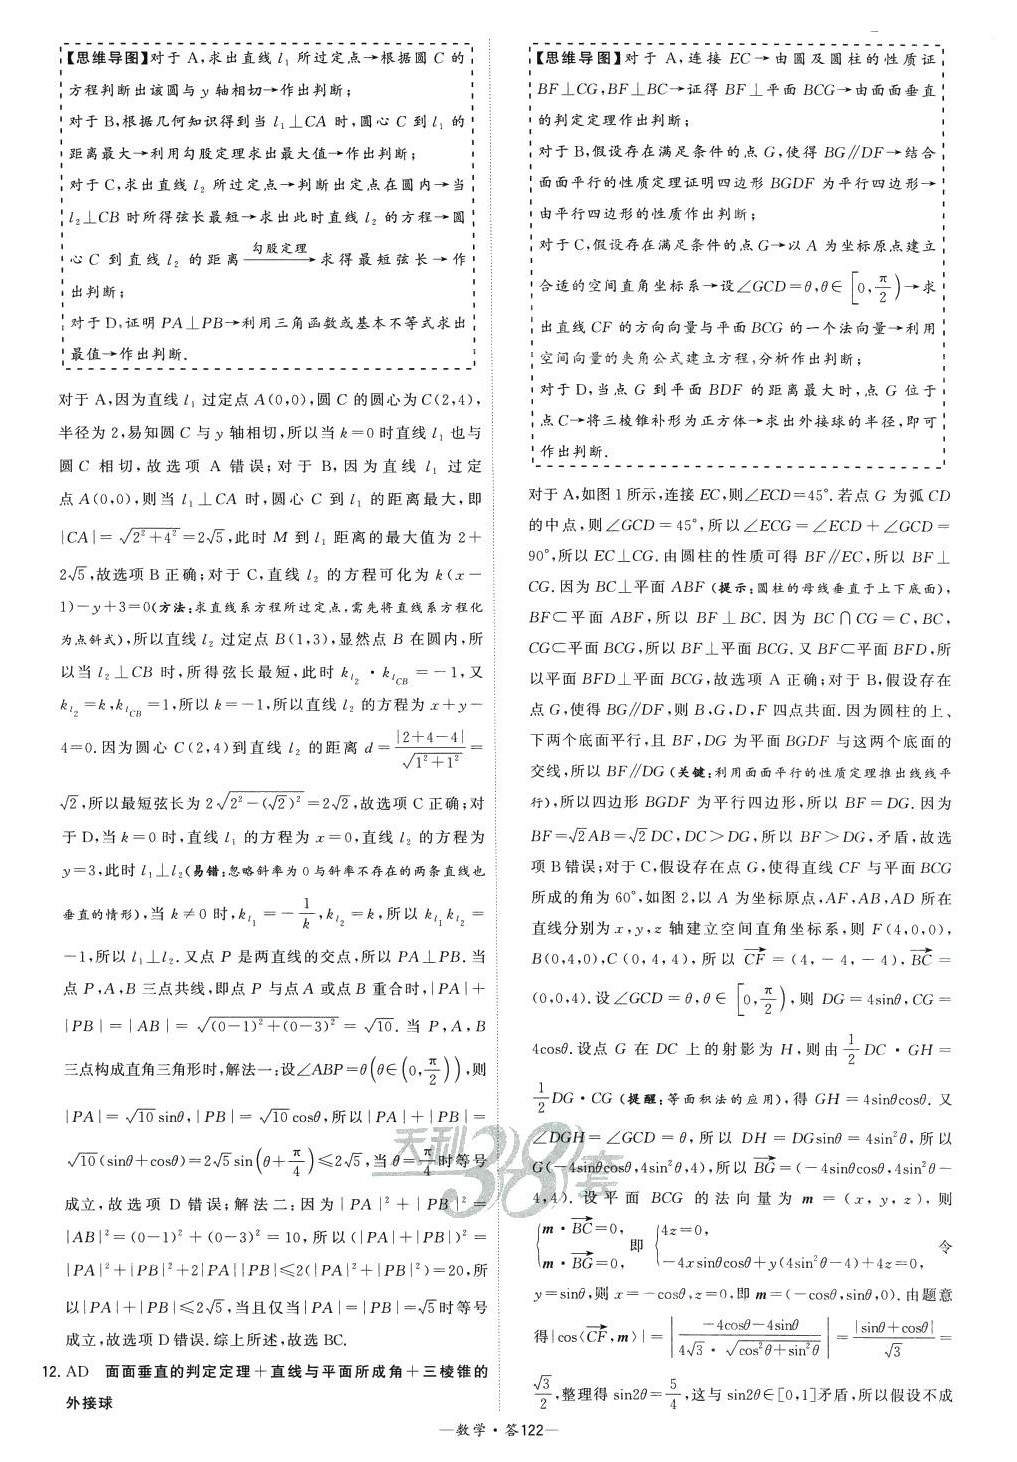 【思维导图】对于 A,求出直线 l₁ 所过定点→根据圆 C 的
方程判断出该圆与 y 轴相切→作出判断;
对于 B,根据几何知识得到当 l₁⊥CA 时,圆心 C 到 l₁ 的
距离最大→利用勾股定理求出最大值→作出判断;
对于 C,求出直线 l₂ 所过定点→判断出定点在圆内→当
l₂⊥CB 时所得弦长最短→求出此时直线 l₂ 的方程→圆
心 C 到直线 l₂ 的距离 勾股定理→ 求得最短弦长→作
出判断;
对于 D,证明 PA⊥PB→利用三角函数或基本不等式求出
最值→作出判断.
对于 A,因为直线 l₁ 过定点 A(0,0),圆 C 的圆心为 C(2,4),
半径为 2,易知圆 C 与 y 轴相切,所以当 k=0 时直线 l₁ 也与
圆 C 相切,故选项 A 错误;对于 B,因为直线 l₁ 过定
点 A(0,0),则当 l₁⊥CA 时,圆心 C 到 l₁ 的距离最大,即
|CA|=√(2²+4²)=2√5,此时 M 到 l₁ 距离的最大值为 2+
2√5,故选项 B 正确;对于 C,直线 l₂ 的方程可化为 k(x-
1)-y+3=0(方法:求直线系方程所过定点,需先将直线系方程化
为点斜式),所以直线 l₂ 过定点 B(1,3),显然点 B 在圆内,所
以当 l₂⊥CB 时,所得弦长最短,此时 k_{l₂}·k_{l_CB}=-1,又
k_{l₂}=k,k_{l_CB}=1,所以 k=-1,所以直线 l₂ 的方程为 x+y-
4=0.因为圆心 C(2,4)到直线 l₂ 的距离 d=|2+4-4|/√(1²+1²)=
√2,所以最短弦长为 2√(2²-(√2)²)=2√2,故选项 C 正确;对
于 D,当 k=0 时,直线 l₁ 的方程为 x=0,直线 l₂ 的方程为
y=3,此时 l₁⊥l₂(易错:忽略斜率为 0 与斜率不存在的两条直线也
垂直的情形),当 k≠0 时,k_{l₁}=-1/k,k_{l₂}=k,所以 k_{l₁}k_{l₂}=
-1,所以 l₁⊥l₂.又点 P 是两直线的交点,所以 PA⊥PB.当
点 P,A,B 三点共线,即点 P 与点 A 或点 B 重合时,|PA|+
|PB|=|AB|=√((0-1)²+(0-3)²)=√10.当 P,A,B
三点构成直角三角形时,解法一:设∠ABP=θ(θ∈(0,π/2)),则
|PA|=√10sinθ,|PB|=√10cosθ,所以|PA|+|PB|=
√10(sinθ+cosθ)=2√5sin(θ+π/4)≤2√5,当θ=π/4时等号
成立,故选项 D 错误;解法二:因为|PA|²+|PB|²=
|AB|²=(0-1)²+(0-3)²=10,所以(|PA|+|PB|)²=
|PA|²+|PB|²+2|PA||PB|≤2(|PA|²+|PB|²)=20,所
以|PA|+|PB|≤2√5,当且仅当|PA|=|PB|=√5时等号
成立,故选项 D 错误.综上所述,故选 BC.
12. AD 面面垂直的判定定理+直线与平面所成角+三棱锥的
外接球
【思维导图】对于 A,连接 EC→由圆及圆柱的性质证
BF⊥CG,BF⊥BC→证得 BF⊥平面 BCG→由面面垂直
的判定定理作出判断;
对于 B,假设存在满足条件的点 G,使得 BG∥DF→结合
面面平行的性质定理证明四边形 BGDF 为平行四边形→
由平行四边形的性质作出判断;
对于 C,假设存在满足条件的点 G→以 A 为坐标原点建立
合适的空间直角坐标系→设∠GCD=θ,θ∈[0,π/2)→求
出直线 CF 的方向向量与平面 BCG 的一个法向量→利用
空间向量的夹角公式建立方程,分析作出判断;
对于 D,当点 G 到平面 BDF 的距离最大时,点 G 位于
点 C→将三棱锥补形为正方体→求出外接球的半径,即可
作出判断.
对于 A,如图 1 所示,连接 EC,则∠ECD=45°.若点 G 为弧 CD
的中点,则∠GCD=45°,所以∠ECG=∠ECD+∠GCD=
90°,所以 EC⊥CG.由圆柱的性质可得 BF∥EC,所以 BF⊥
CG.因为 BC⊥平面 ABF(提示:圆柱的母线垂直于上下底面),
BF⊂平面 ABF,所以 BF⊥BC.因为 BC∩CG=C,BC,
CG⊂平面 BCG,所以 BF⊥平面 BCG.又 BF⊂平面 BFD,所
以平面 BFD⊥平面 BCG,故选项 A 正确;对于 B,假设存在
点 G,使得 BG∥DF,则 B,G,D,F 四点共面.因为圆柱的上、
下两个底面平行,且 BF,DG 为平面 BGDF 与这两个底面的
交线,所以 BF∥DG(关键:利用面面平行的性质定理推出线线平
行),所以四边形 BGDF 为平行四边形,所以 BF=DG.因为
BF=√2AB=√2DC,DC>DG,所以 BF>DG,矛盾,故选
项 B 错误;对于 C,假设存在点 G,使得直线 CF 与平面 BCG
所成的角为 60°,如图 2,以 A 为坐标原点,AF,AB,AD 所在
直线分别为 x,y,z 轴建立空间直角坐标系,则 F(4,0,0),
B(0,4,0),C(0,4,4),所以 CF→=(4,-4,-4),BC→=
(0,0,4).设∠GCD=θ,θ∈[0,π/2),则 DG=4sinθ,CG=
4cosθ.设点 G 在 DC 上的射影为 H,则由 1/2 DC·GH=
1/2 DG·CG(提醒:等面积法的应用),得 GH=4sinθcosθ.又
∠DGH=∠GCD=θ,所以 DH=DGsinθ=4sin²θ,所以
G(-4sinθcosθ,4sin²θ,4),所以 BG→=(-4sinθcosθ,4sin²θ-
4,4).设平面 BCG 的法向量为 m=(x,y,z),则
{m·BC→=0, m·BG→=0, 即 {4z=0, -4xsinθcosθ+y(4sin²θ-4)+4z=0, 令
y=sinθ,则 x=-cosθ,z=0,即 m=(-cosθ,sinθ,0).由题意
得|cos⟨CF→,m⟩|=|(-4cosθ-4sinθ)/(4√3·√(cos²θ+sin²θ))|=|sinθ+cosθ|/√3=
√3/2,整理得 sin2θ=5/4,这与 sin2θ∈[0,1]矛盾,所以假设不成
天利38套
—数学·答122—